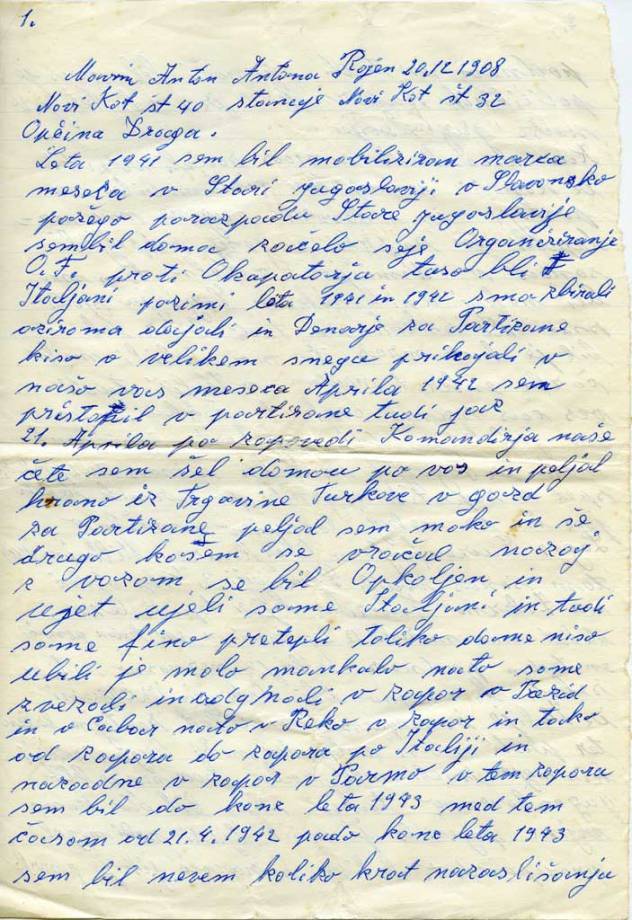 1.
Anton Antona Rojen 20.12.1908
Novi Kot št 40 stanuje Novi Kot št 32
Občina Draga.
Leta 1941 sem bil mobiliziran marca
meseca v Stari jugoslaviji v Slavonsko
požego porazpadu Stare jugoslavije
sembil doma začelo seje Organiziranje
O.F. proti Okapatorju taso bli
Italjani pozimi leta 1941 in 1942 smo zbirali
oziroma dajali in Denarje za Partizane
kiso v velikem snegu prihajali v
našo vas meseca Aprila 1942 sem
pristopil v partizane tudi jaz
21. Aprila po zapovedi Komandirja naše
čete sem šel domou po vos in peljal
hrano iz Trgavine Turkove v gozd
za Partizane peljal sem moko in še
drugo košem se vračal nazaj
z vozom se bil Opkoljen in
ujet ujeli some Italjani in tudi
some fino pretepli toliko dame niso
ubili je malo mankalo nato some
zvezali in odgnali v zapor v
in v Čabar nato v Reko v zapor in tako
od zapora do zapora po Italiji in
nazadne v zapor v Parmo v tem zaporu
sem bil do konc leta 1943 med tem
časom od 21.4.1942 pado konc leta 1943
sem bil nevem koliko krat nazaslišanju